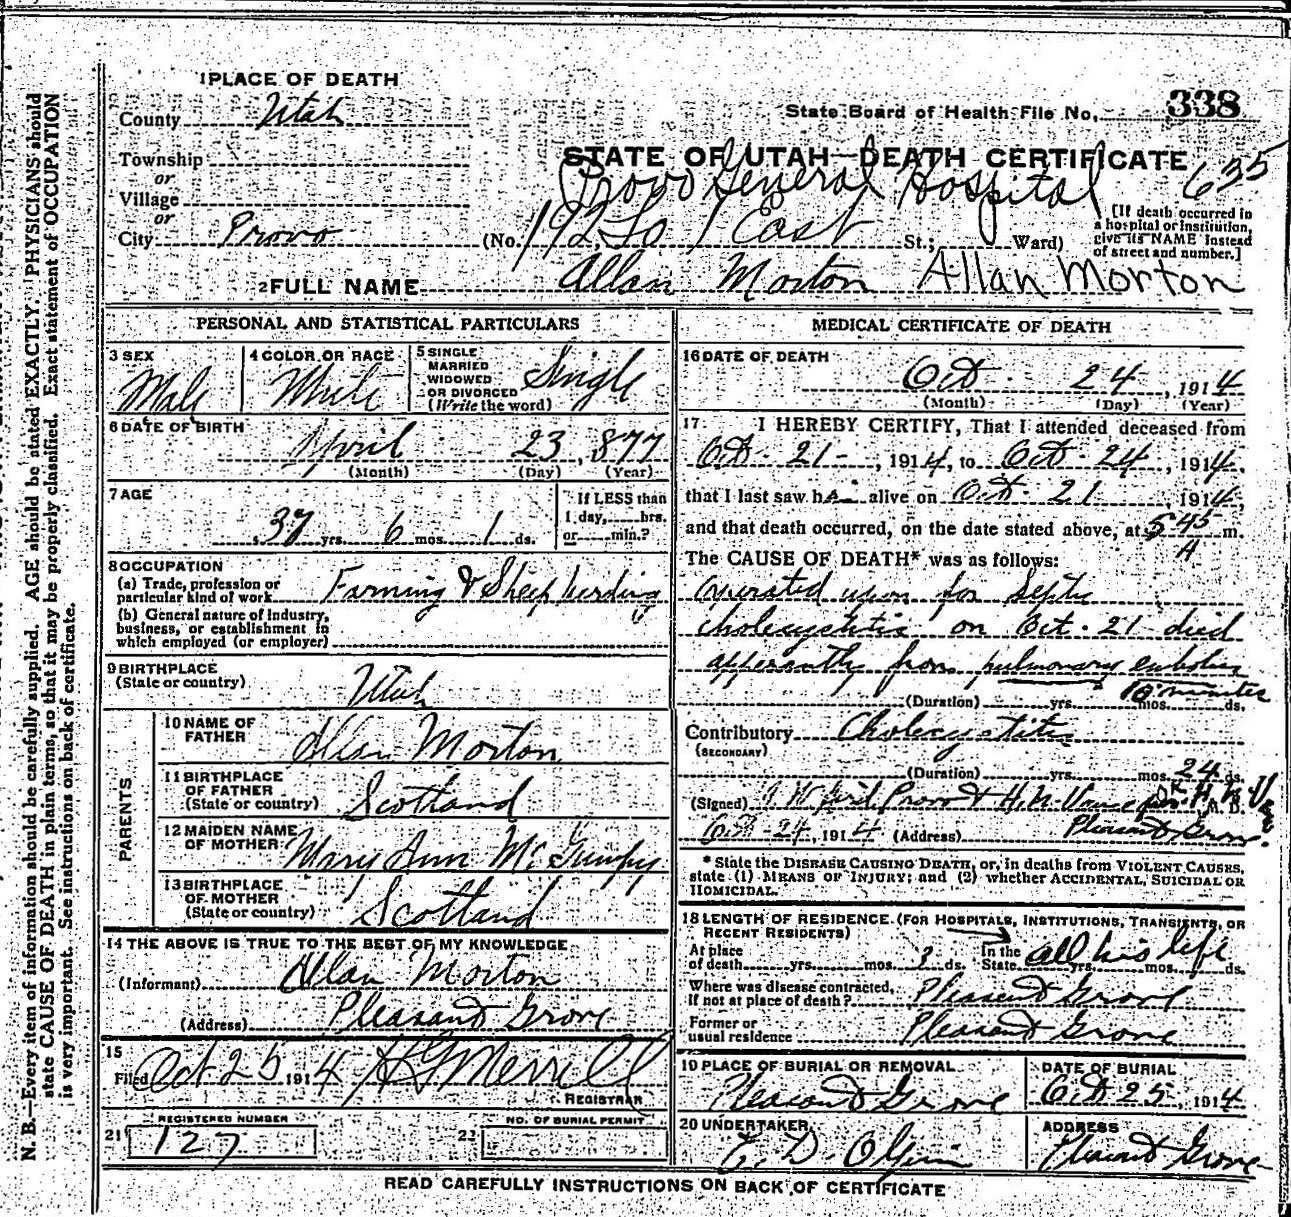 1 PLACE OF DEATH
County Utah
Township
or
Village
or
City Provo
State Board of Health File No. 338
STATE OF UTAH—DEATH CERTIFICATE
635
Provo General Hospital
(No. 192 So 1 East St.; Ward)
[If death occurred in a hospital or institution, give its NAME instead of street and number.]
2 FULL NAME Allan Morton Allan Morton
PERSONAL AND STATISTICAL PARTICULARS
3 SEX
Male
4 COLOR OR RACE
White
5 SINGLE MARRIED WIDOWED OR DIVORCED (Write the word)
Single
6 DATE OF BIRTH
April 23, 877
(Month) (Day) (Year)
7 AGE
37 yrs. 6 mos. 1 ds.
If LESS than 1 day, hrs. or min.?
8 OCCUPATION
(a) Trade, profession or particular kind of work Farming & Sheep herding
(b) General nature of industry, business, or establishment in which employed (or employer)
9 BIRTHPLACE
(State or country) Utah
PARENTS
10 NAME OF FATHER Allan Morton
11 BIRTHPLACE OF FATHER (State or country) Scotland
12 MAIDEN NAME OF MOTHER Mary Ann
13 BIRTHPLACE OF MOTHER (State or country) Scotland
14 THE ABOVE IS TRUE TO THE BEST OF MY KNOWLEDGE
(Informant) Allan Morton
(Address) Pleasant Grove
15
Filed Oct 25 1914 H G Merrill
REGISTRAR
REGISTERED NUMBER
21 127
NO. OF BURIAL PERMIT
22
MEDICAL CERTIFICATE OF DEATH
16 DATE OF DEATH
Oct 24, 1914
(Month) (Day) (Year)
17. I HEREBY CERTIFY, That I attended deceased from
Oct. 21, 1914, to Oct. 24, 1914,
that I last saw h alive on Oct. 21 1914,
and that death occurred, on the date stated above, at 5 45 m.
A
The CAUSE OF DEATH* was as follows:
Operated upon for Septic
cholecystitis on Oct. 21 died
apparently from pulmonary embolus
10 minutes
(Duration) yrs. mos. ds.
Contributory Cholecystitis
(SECONDARY)
(Duration) yrs. mos. 24 ds.
(Signed) Provo & H. N.
Oct 24, 1914 (Address) Pleasant Grove
* State the DISEASE CAUSING DEATH, or, in deaths from VIOLENT CAUSES, state (1) MEANS OF INJURY; and (2) whether ACCIDENTAL, SUICIDAL OR HOMICIDAL.
18 LENGTH OF RESIDENCE (FOR HOSPITALS, INSTITUTIONS, TRANSIENTS, OR RECENT RESIDENTS)
At place of death yrs. mos. 3 ds. In the State all his life yrs. mos. ds.
Where was disease contracted, if not at place of death? Pleasant Grove
Former or usual residence Pleasant Grove
19 PLACE OF BURIAL OR REMOVAL
Pleasant Grove
DATE OF BURIAL
Oct 25, 1914
20 UNDERTAKER
E. D. Olpin
ADDRESS
Pleasant Grove
READ CAREFULLY INSTRUCTIONS ON BACK OF CERTIFICATE
N. B.—Every item of information should be carefully supplied. AGE should be stated EXACTLY. PHYSICIANS should
state CAUSE OF DEATH in plain terms, so that it may be properly classified. Exact statement of OCCUPATION
is very important. See instructions on back of certificate.